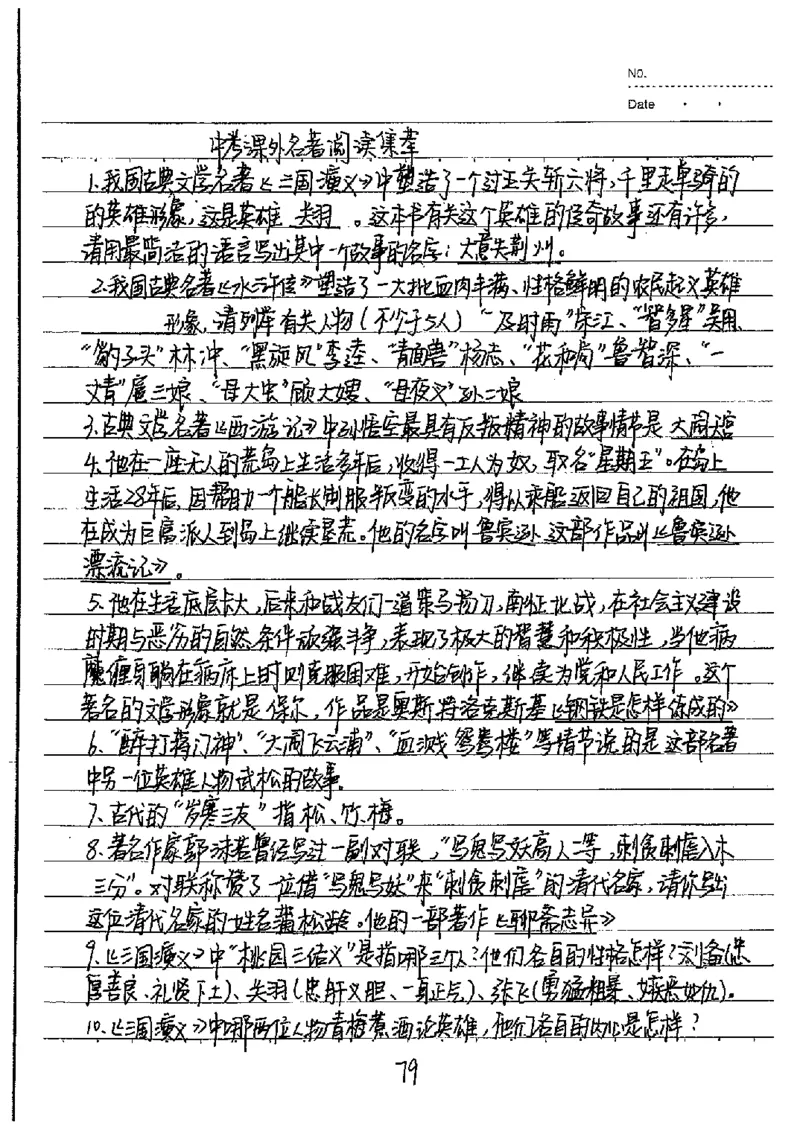 No.
Date
中考课外名著阅读集萃
1.我国古典文学名著《三国演义》中塑造了一个过五关斩六将,千里走单骑的
的英雄形象,这是英雄 关羽 。这本书有关这个英雄的传奇故事还有许多,
请用最简洁的语言写出其中一个故事的名字:大意失荆州。
2.我国古典名著《水浒传》塑造了一大批血肉丰满、性格鲜明的农民起义英雄
形象,请列举有关人物(不少于5人) "及时雨"宋江、"智多星"吴用、
"豹子头"林冲、"黑旋风"李逵、"青面兽"杨志、"花和尚"鲁智深、"一
丈青"扈三娘、"母大虫"顾大嫂、"母夜叉"孙二娘
3.古典文学名著《西游记》中孙悟空最具有反叛精神的故事情节是 大闹天宫
4.他在一座无人的荒岛上生活多年后,收得一土人为奴,取名"星期五"。在岛上
生活28年后,因帮助一个船长制服叛变的水手,得以乘船返回自己的祖国,他
在成为巨富派人到岛上继续垦荒。他的名字叫鲁宾逊 这部作品叫《鲁宾逊
漂流记》。
5.他在生活底层长大,后来和战友们一道策马扬刀,南征北战,在社会主义建设
时期与恶劣的自然条件顽强斗争,表现了极大的智慧和积极性,当他病
魔缠身躺在病床上时则克服困难,开始创作,继续为党和人民工作。这个
著名的文学形象就是保尔,作品是奥斯特洛克斯基《钢铁是怎样练成的》
6."醉打蒋门神"、"大闹飞云浦"、"血溅鸳鸯楼"等情节说的是这部名著
中另一位英雄人物武松的故事。
7、古代的"岁寒三友"指松、竹、梅。
8.著名作家郭沫若曾经写过一副对联,"写鬼写妖高人一等,刺贪刺虐入木
三分"。对联称赞了一位借"写鬼写妖"来"刺贪刺虐"的清代名家,请你写出
这位清代名家的姓名蒲松龄。他的一部著作《聊斋志异》
9.《三国演义》中"桃园三结义"是指哪三个人?他们各自的性格怎样?刘备(忠
厚善良、礼贤下士)、关羽(忠肝义胆、一身正气)、张飞(勇猛粗暴、嫉恶如仇)。
10.《三国演义》中哪两位人物青梅煮酒论英雄,他们各自的内心是怎样?
79